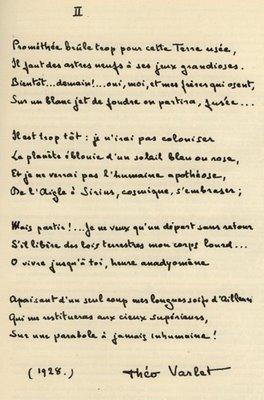 II
Prométhée brûle trop pour cette Terre usée,
Il faut des astres neufs à ses jeux grandioses.
Bientôt...demain!...oui, moi, et mes frères qui osent,
Sur un blanc jet de foudre on partira, fusée...
Il est trop tôt : je n'irai pas coloniser
La planète éblouie d'un soleil bleu ou rose,
Et je ne verrai pas l'humaine apothéose,
De l'Aigle à Sirius, cosmique, s'embraser ;
Mais partir!...Je ne veux qu'un départ sans retour
S'il libère des lois terrestres mon corps lourd...
O vivre jusqu'à toi, heure anadyomène
Apaisant d'un seul coup mes longues soifs d'Ailleurs
Qui me restitueras aux cieux supérieurs,
Sur une parabole à jamais inhumaine !
(1928.) Théo Varlet